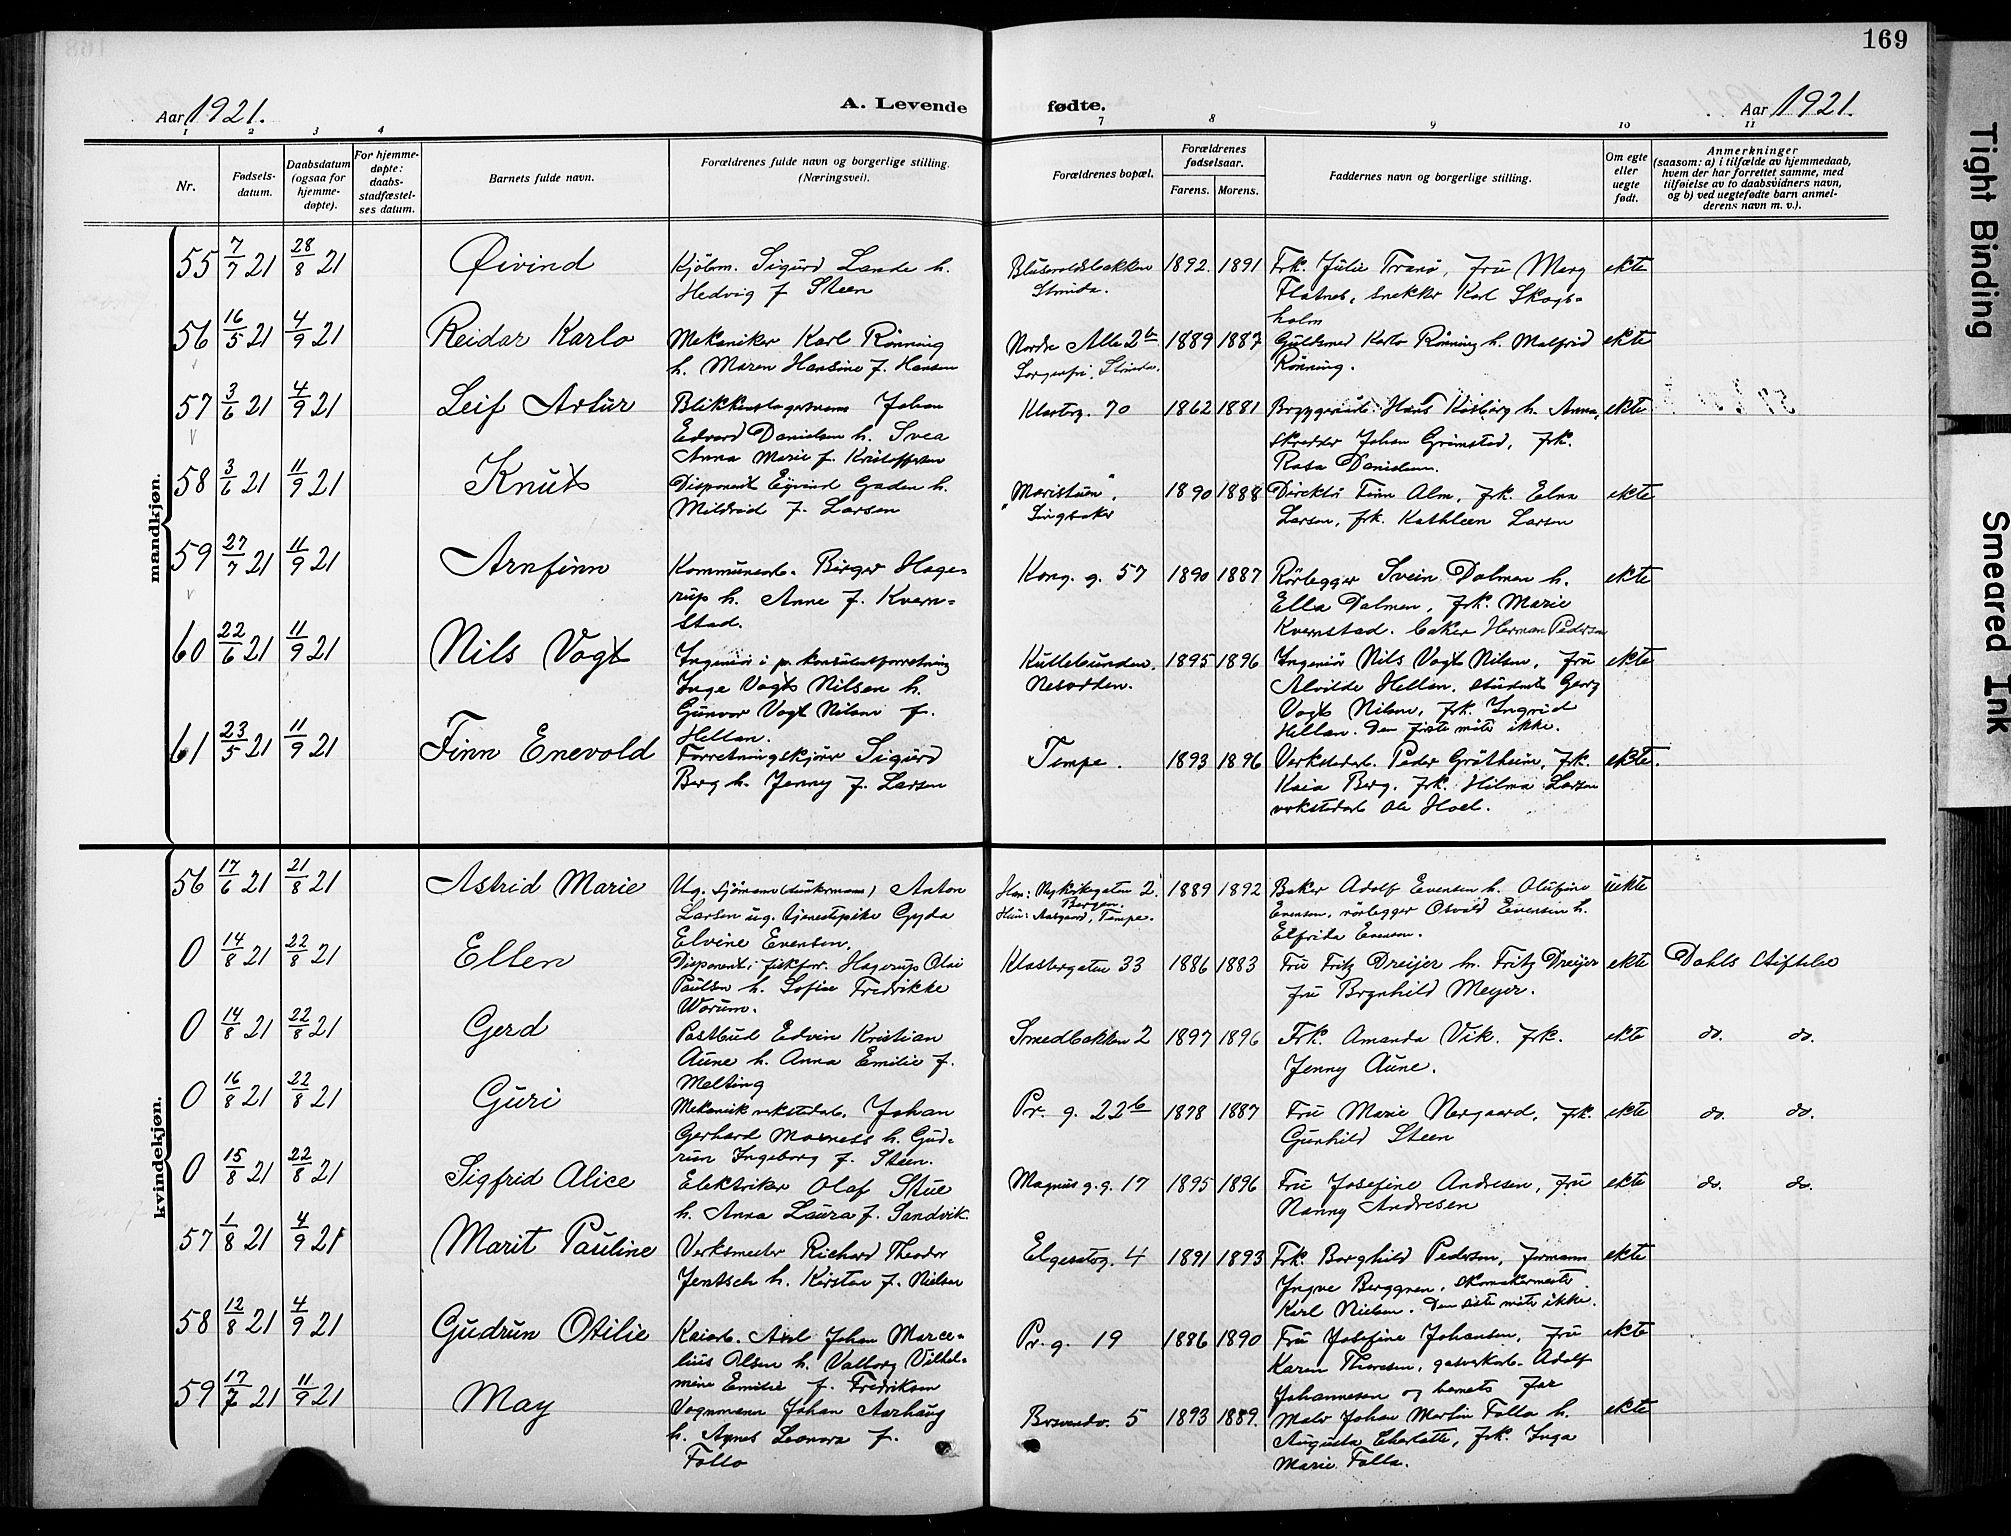 169
Aar 1921.
A. Levende fødte.
Aar 1921.
1 2 3 4 7 8 9 10 11
Nr.
Fødsels-
datum.
Daabsdatum
(ogsaa for
hjemme-
døpte).
For hjemme-
døpte:
daabs-
stadfæstel-
ses datum.
Barnets fulde navn.
Forældrenes fulde navn og borgerlige stilling.
(Næringsvei).
Forældrenes bopæl.
Forældrenes
fødselsaar.
Farens. Morens.
Faddernes navn og borgerlige stilling.
Om egte
eller
uegte
født.
Anmerkninger
(saasom: a) i tilfælde av hjemmedaab,
hvem der har forrettet samme, med
tilføielse av to daabsvidners navn,
og b) ved uegtefødte barn anmel-
derens navn m. v.).
mandkjøn.
55 7/7 21 28/8 21 Øivind
Kjøbm. Sigurd Lande h.
Hedvig f Steen
Strinda.
1892. 1891
Frk. Julie Tranø, Fru Marg
Flatnes, snekker Karl Skogs-
holm
ekte
56 16/5 21 4/9 21 Reidar Karlo
Mekaniker Karl Rønning
h. Maren Hansine f. Hansen
Nordre Alle 2b
Sorgenfri, Strinda.
1889 1887
Gullsmed Karlo Rønning h. Malfrid
Rønning.
ekte
57 3/6 21 4/9 21 Leif Artur
Blikkenslagersvenn Johan
Edvard Danielsen h. Svea
Anna Marie f. Kristoffersen
Klosterg. 70
1862 1881
Bryggeriarb. Hans Kosberg h. Anna,
skredder Johan Grimstad, frk.
Rosa Danielsen.
ekte
58 3/6 21 11/9 21 Knut
Disponent Eyvind Gaden h.
Mildrid f. Larsen
"Maristuen",
Singsaker
1890 1888
Direktør Finn Alm, frk. Elna
Larsen, frk. Kathleen Larsen
ekte
59 27/7 21 11/9 21 Arnfinn
Kommunearb. Birger Hage-
rup h. Anne f. Kvern-
stad.
Kong. g. 57
1890 1887
Rørlegger Svein Dalmen h.
Ella Dalmen, frk. Marie
Kvernstad. baker Herman Pedersen
ekte
60 22/6 21 11/9 21 Nils Vogt
Ingeniør i pr. konsulentforretning
Inge Vogt Nilsen h.
Gunvor Vogt Nilsen f.
Hellan.
Kullebunden.
Nesodden.
1895 1896
Ingeniør Nils Vogt Nilsen, Fru
Alvilde Hellan. student Georg
Vogt Nilsen, frk. Ingrid
Hellan. Den første møtte ikke.
ekte
61 23/5 21 11/9 21 Finn Enevold
Forretningskjører Sigurd
Berg h. Jenny f. Larsen
Tempe.
1893 1896
Verkstedarb. Peder Grøtheim, frk.
Kaia Berg, frk. Hilma Larsen
verkstedarb Ole Hoel.
ekte.
kvindekjøn.
56 17/6 21 21/8 21 Astrid Marie
Ug. sjømann (dunkermann) Anton
Larsen ug. tjenestepike Gyda
Elvine Evensen.
Han: Nykirkegaten 2.
Bergen.
Hun: Aasgaard, Tempe.
1889 1892
Baker Adolf Evensen h. Olufine
Evensen, rørlegger Osvald Evensen h.
Elfrida Evensen.
uekte
0 14/8 21 22/8 21 Ellen
Disponent i fiskfor. Hagerup Olai
Paulsen h. Sofie Fredrikke
Worum.
Klostergaten 33
1886 1883
Fru Fritz Dreijer hr. Fritz Dreijer
fru Brynhild Meyer.
ekte
Dahls Stiftelse
0 14/8 21 22/8 21 Gerd
Postbud Edvin Kristian
Aune h. Anna Emilie f.
Melting
Smedbakken 2
1897 1896
Frk. Amanda Vik. frk.
Jenny Aune.
ekte
do. do.
0 16/8 21 22/8 21 Guri
Mekanisk verkstedarb. Johan
Gerhard Moxness h. Gud-
run Ingeborg f. Steen.
Pr. g. 22b
1898 1887
Fru Marie Norgaard, frk.
Gunhild Steen
ekte
do. do.
0 15/8 21 22/8 21 Sigfrid Alice
Elektriker Olaf Stue
h. Anna Laura f. Sandvik.
Magnus g. g. 17
1895 1896
Fru Josefine Andresen, fru
Nanny Andresen
ekte
do. do.
57 1/8 21 4/9 21 Marit Pauline
Verksmester Richard Theodor
Jentsch h. Kirsten f. Nielsen
Elgesetg. 4
1891 1893
Frk. Borghild Pedersen, formann
Yngve Berggren, skomakermester
Karl Nielsen. Den siste møtte ikke.
ekte
58 12/8 21 4/9 21 Gudrun Otilie
Kaiarb. Axel Johan Marce-
lius Olsen h. Valborg Vilhel-
mine Emilie f. Fredriksen
Pr. g. 19
1886 1890
Fru Josefine Johansen, fru
Karen Thoresen, gasverkarb. Adolf
Johannesen og barnets far
ekte
59 17/7 21 11/9 21 May
Vognmann Johan Aarhaug
h. Agnes Leonora f.
Follo
5
1893 1889.
Maler Johan Martin Follo h.
Augusta Charlotte, frk. Inga
Marie Follo.
ekte
Tight Binding
Smeared Ink